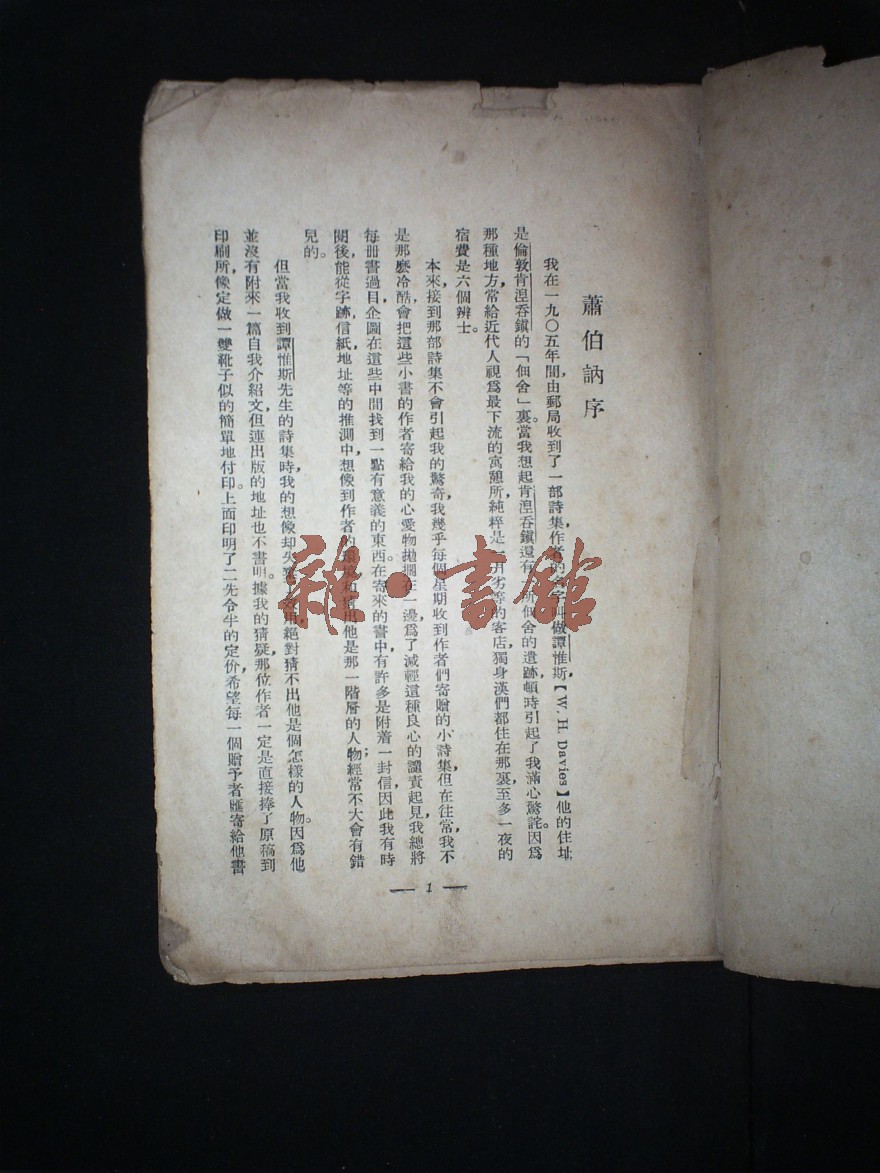 蕭伯訥序
我在一九〇五年間，由郵局收到了一部詩集，作者的名字叫做譚惟斯，【W. H. Davies】他的住址
是倫敦肯湼吞鎮的「佃舍」裏。當我想起肯湼吞鎮還有一所佃舍的遺跡，頓時引起了我滿心驚詫。因爲
那種地方，常給近代人視爲最下流的寓憩所，純粹是一月劣等的客店，獨身漢們都住在那裏，至多一夜的
宿費是六個辨士。
本來，接到那部詩集不會引起我的驚奇，我幾乎每個星期收到作者們寄贈的小詩集，但在往常，我不
是那麽冷酷，會把這些小書的作者寄給我的心愛物拋擱在一邊，爲了減輕這種良心的譴責起見，我總將
每册書過目，企圖在這些中間找到一點有意義的東西。在寄來的書中，有許多是附着一封信，因此我有時
閱後，能從字跡，信紙，地址等的推測中，想像到作者的環境和猜出他是那一階層的人物；經常不大會有錯
兒的。
但當我收到譚惟斯先生的詩集時，我的想像却失掉了效用，絕對猜不出他是個怎樣的人物。因爲他
並沒有附來一篇自我介紹文，但連出版的地址也不書明。據我的猜疑，那位作者一定是直接捧了原稿到
印刷所，像定做一雙靴子似的簡單地付印。上面印明了二先令半的定价，希望每一個贈予者匯寄給他書
— 1 —
雜·書館